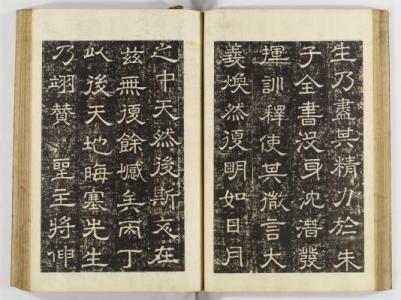 生乃盡其精力於朱
子全書沒身沈潛發
揮訓釋使其微言大
義煥然復明如日月
之中天然後斯文在
茲無復餘憾矣丙丁
以後天地晦塞先生
乃翊贊 聖主將伸